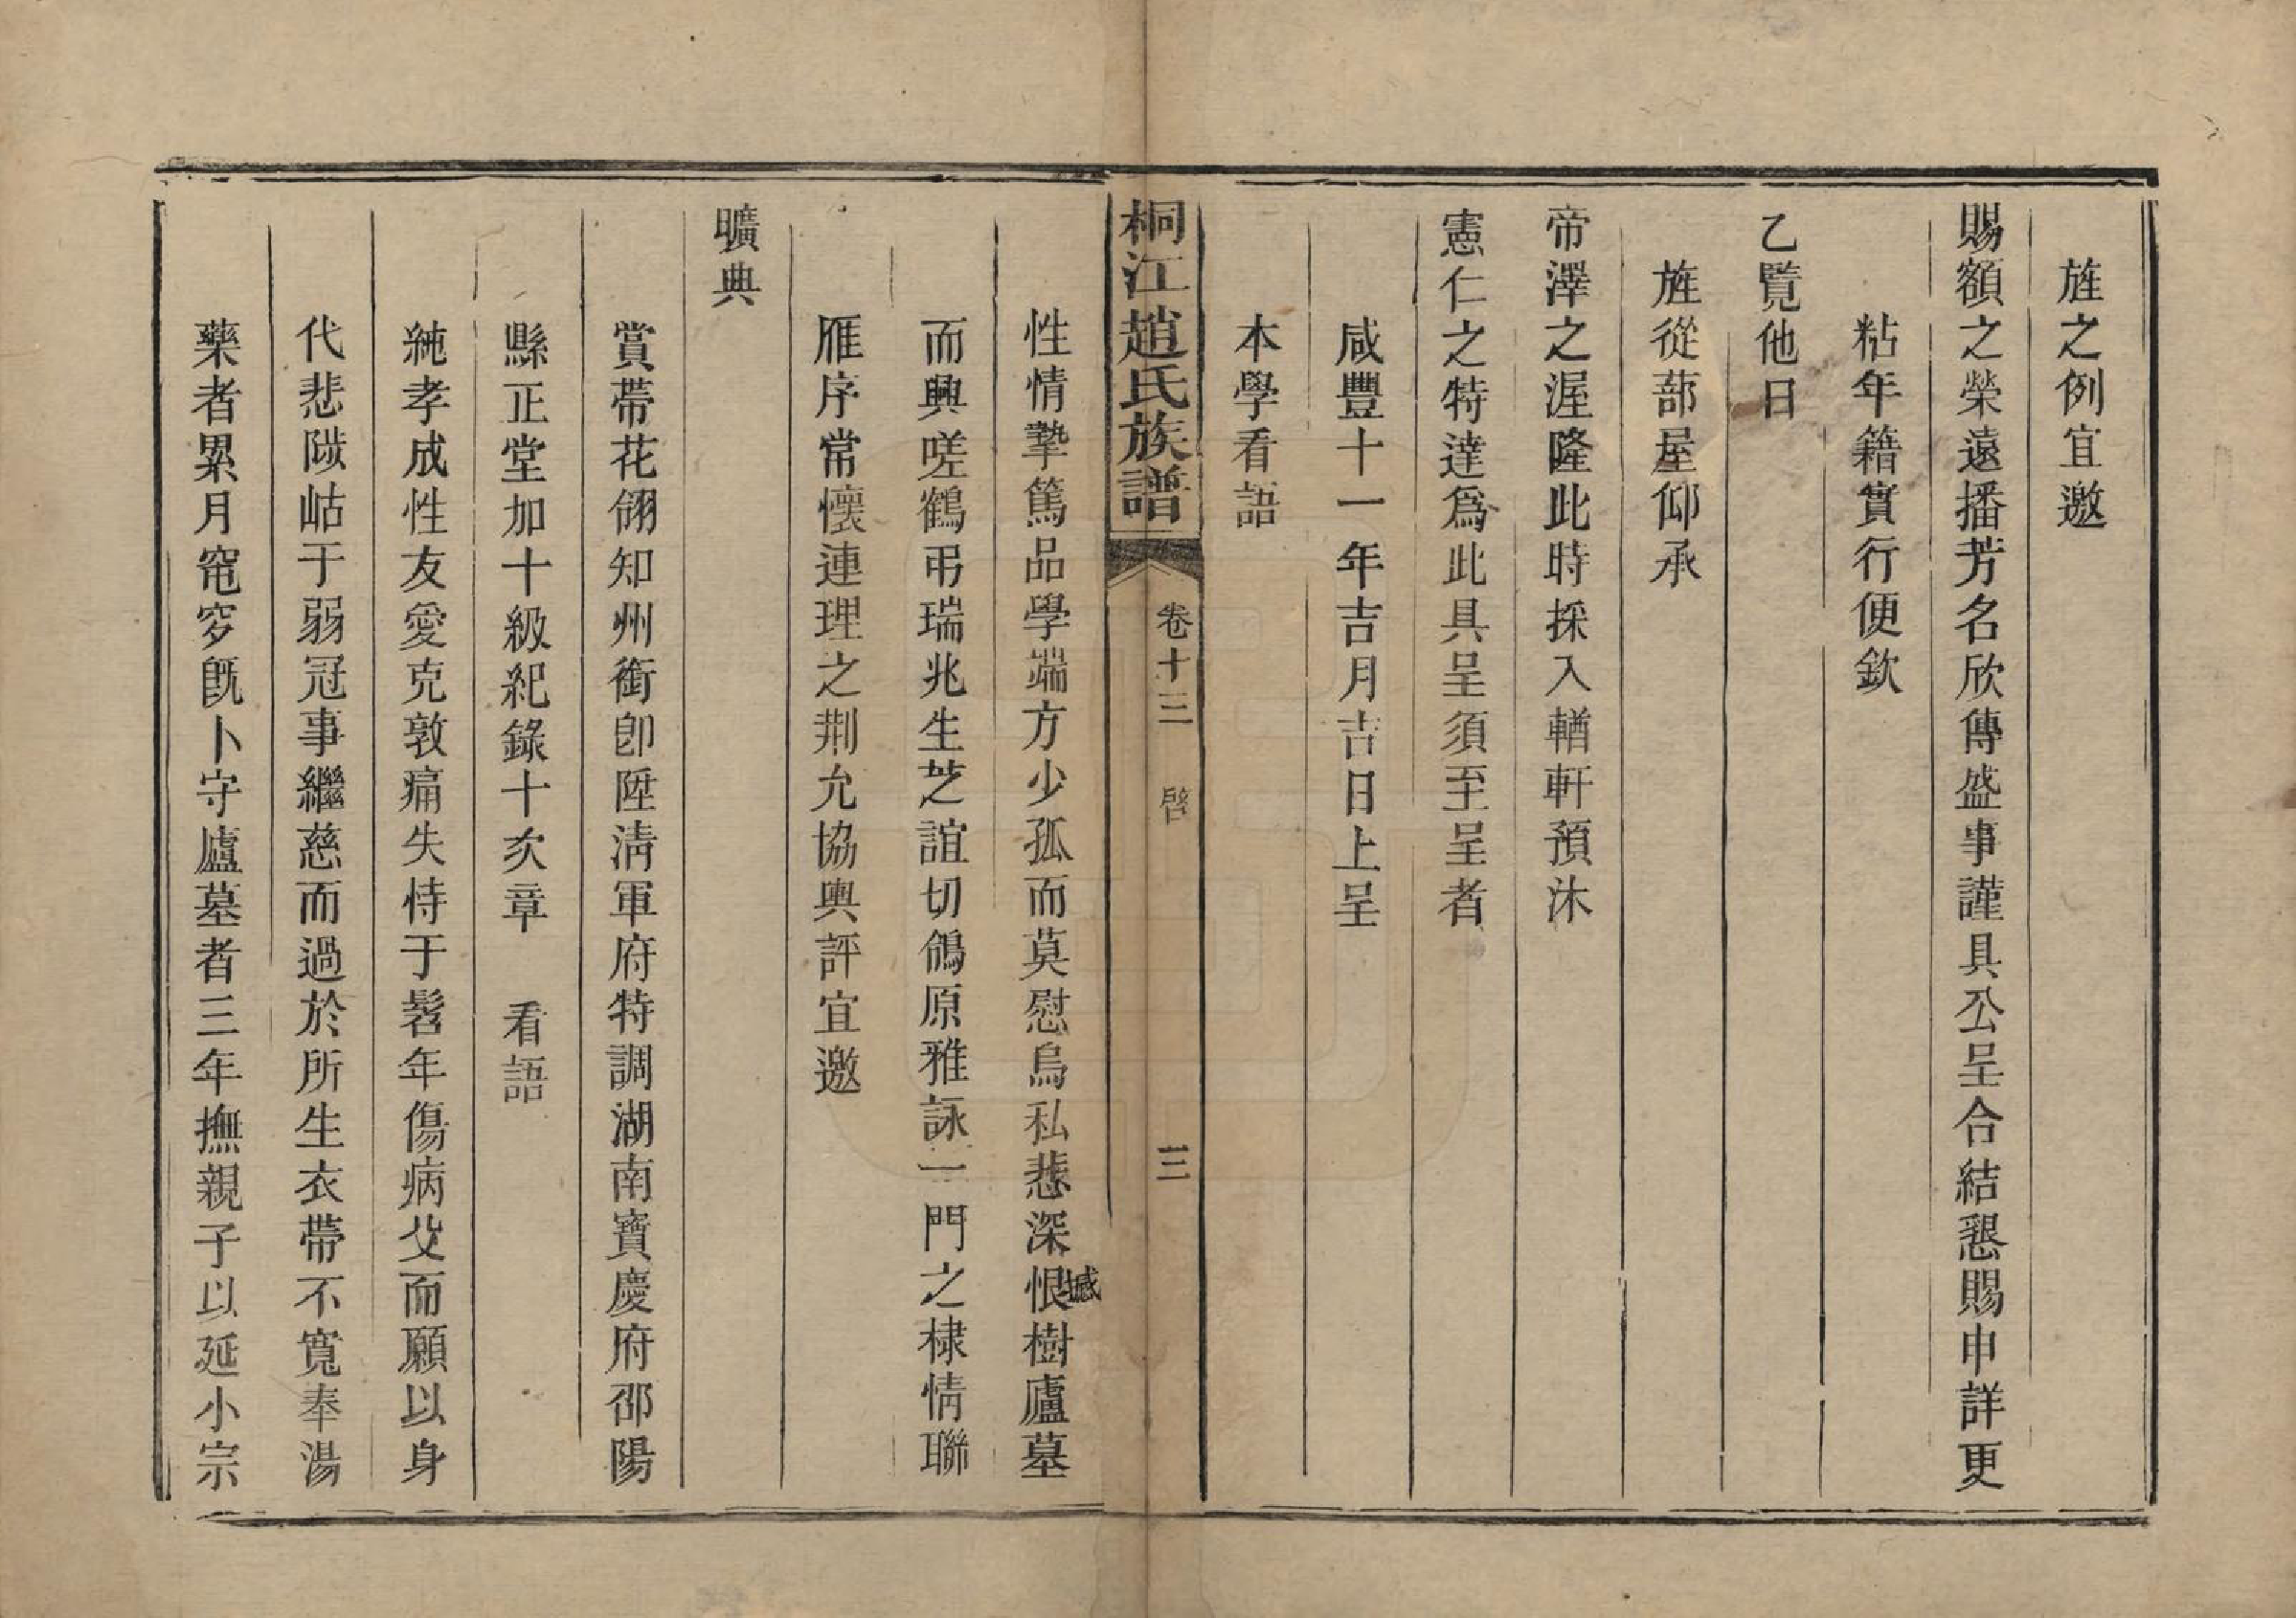 旌之例宜邀
賜額之榮遠播芳名欣傳盛事謹具公呈合結懇賜申詳更
粘年籍實行便欽
乙覽他日
旌從蔀屋仰承
帝澤之渥隆此時採入輶軒預沐
憲仁之特達爲此具呈須至呈者
咸豐十一年吉月吉日上呈
本學看語
桐江趙氏族譜 卷十三 啓 三
性情摯篤品學端方少孤而莫慰烏私悲深恨樹廬墓
憾
而興嗟鶴弔瑞兆生芝誼切鴒原雅詠一門之棣情聯
雁序常懷連理之荆允協輿評宜邀
曠典
賞帶花翎知州銜卽陞淸軍府特調湖南寶慶府邵陽
縣正堂加十級紀錄十次章 看語
純孝成性友愛克敦痛失恃于髫年傷病父而願以身
代悲陟岵于弱冠事繼慈而過於所生衣帶不寬奉湯
藥者累月窀穸旣卜守廬墓者三年撫親子以延小宗